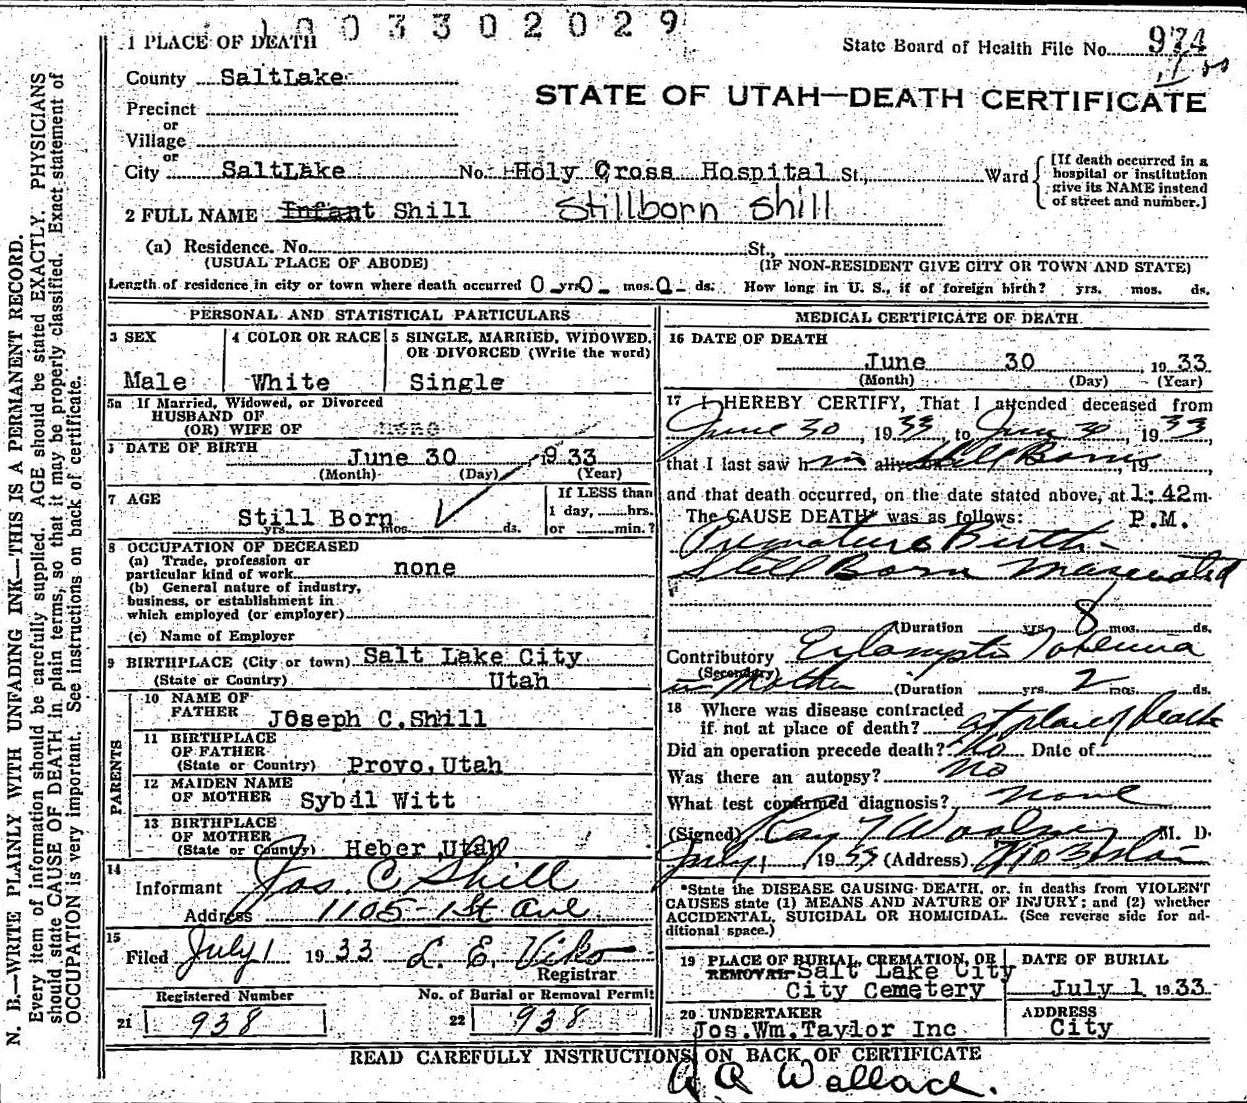 1003302029
1 PLACE OF DEATH
State Board of Health File No. 974
County SaltLake
STATE OF UTAH—DEATH CERTIFICATE
Precinct
or
Village
or
City SaltLake No. Holy Cross Hospital St., Ward [If death occurred in a hospital or institution give its NAME instead of street and number.]
2 FULL NAME Infant Shill Stillborn Shill
(a) Residence. No. St.,
(USUAL PLACE OF ABODE) (IF NON-RESIDENT GIVE CITY OR TOWN AND STATE)
Length of residence in city or town where death occurred 0 yrs. 0 mos. 0 ds. How long in U. S., if of foreign birth? yrs. mos. ds.
PERSONAL AND STATISTICAL PARTICULARS
3 SEX 4 COLOR OR RACE 5 SINGLE, MARRIED, WIDOWED, OR DIVORCED (Write the word)
Male White Single
5a If Married, Widowed, or Divorced
HUSBAND OF
(OR) WIFE OF none
6 DATE OF BIRTH June 30 1933
(Month) (Day) (Year)
7 AGE If LESS than
Still Born 1 day, hrs.
yrs. mos. ds. or min.?
8 OCCUPATION OF DECEASED
(a) Trade, profession or
particular kind of work none
(b) General nature of industry,
business, or establishment in
which employed (or employer)
(c) Name of Employer
9 BIRTHPLACE (City or town) Salt Lake City
(State or Country) Utah
PARENTS
10 NAME OF
FATHER Joseph C. Shill
11 BIRTHPLACE
OF FATHER
(State or Country) Provo, Utah
12 MAIDEN NAME
OF MOTHER Sybil Witt
13 BIRTHPLACE
OF MOTHER
(State or Country) Heber, Utah
14
Informant Jos. C. Shill
Address 1105 - 1st Ave
15
Filed July 1 1933 L. E. Viko
Registrar
Registered Number No. of Burial or Removal Permit
21 938 22 938
MEDICAL CERTIFICATE OF DEATH
16 DATE OF DEATH
June 30, 1933
(Month) (Day) (Year)
17 I HEREBY CERTIFY, That I attended deceased from
June 30, 1933, to June 30, 1933,
that I last saw him alive on Still Born, 19
and that death occurred, on the date stated above, at 1:42 m.
The CAUSE DEATH* was as follows: P.M.
Premature Birth -
Still Born Macerated
(Duration yrs. 8 mos. ds.
Contributory Eclamptic Toxemia
(Secondary)
in Mother (Duration yrs. 2 mos. ds.
18 Where was disease contracted
if not at place of death? at place of death
Did an operation precede death? No Date of
Was there an autopsy? No
What test confirmed diagnosis? none
(Signed) Ray T Woolsey M. D.
July 1 1933 (Address)
*State the DISEASE CAUSING DEATH, or, in deaths from VIOLENT
CAUSES state (1) MEANS AND NATURE OF INJURY; and (2) whether
ACCIDENTAL, SUICIDAL OR HOMICIDAL. (See reverse side for additional space.)
19 PLACE OF BURIAL, CREMATION, OR REMOVAL DATE OF BURIAL
Salt Lake City
City Cemetery July 1 1933.
20 UNDERTAKER ADDRESS
Jos. Wm. Taylor Inc City
READ CAREFULLY INSTRUCTIONS ON BACK OF CERTIFICATE
A Q Wallace.
N. B.—WRITE PLAINLY WITH UNFADING INK—THIS IS A PERMANENT RECORD.
Every item of information should be carefully supplied. AGE should be stated EXACTLY. PHYSICIANS
should state CAUSE OF DEATH in plain terms, so that it may be properly classified. Exact statement of
OCCUPATION is very important. See instructions on back of certificate.